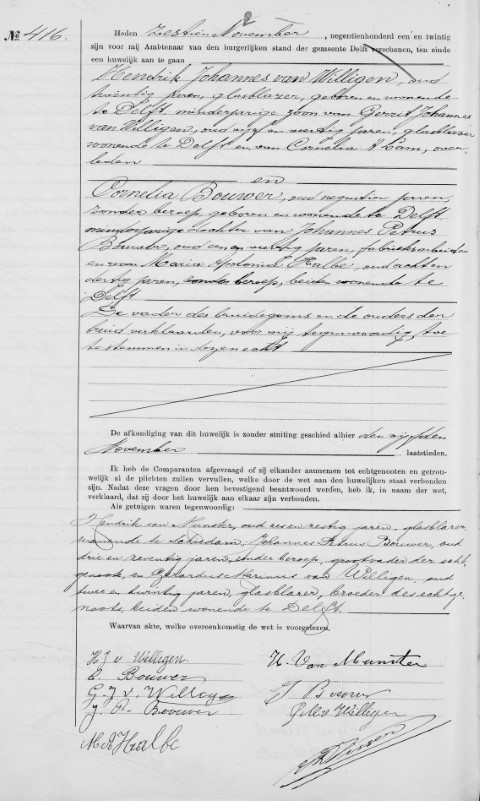 No 416.
Heden zestien November, negentienhonderd een en twintig
zijn voor mij Ambtenaar van den burgerlijken stand der gemeente Delft verschenen, ten einde
een huwelijk aan te gaan
Hendrik Johannes van Willigen, oud
twintig jaren, glasblazer, geboren en wonende
te Delft, minderjarige zoon van Gerrit Johannes
van Willigen, oud vijf en veertig jaren, glasblazer
wonende te Delft en van Cornelia Lam, over-
leden
en
Cornelia Bouwer, oud negentien jaren,
zonder beroep geboren en wonende te Delft
minderjarige dochter van Johannes Petrus
Bouwer, oud een en veertig jaren, fabrieksarbeider
en van Maria Apolonia Halbe, oud acht en
dertig jaren, zonder beroep, beiden wonende te
Delft
De vader des bruidegoms en de ouders der
bruid verklaarden, voor mij tegenwoordig, toe
te stemmen in dezen echt
De afkondiging van dit huwelijk is zonder stuiting geschied alhier den vijfden
November laatstleden.
Ik heb de Comparanten afgevraagd of zij elkander aannemen tot echtgenooten en getrouw-
welijk al de plichten zullen vervullen, welke door de wet aan den huwelijken staat verbonden
zijn. Nadat deze vragen door hen bevestigend beantwoord werden, heb ik, in naam der wet,
verklaard, dat zij door het huwelijk aan elkaar zijn verbonden.
Als getuigen waren tegenwoordig:
Hendrik van Munster, oud en zestig jaren, glasblazer
wonende te Schiedam, Johannes Petrus Bouwer, oud
drie en zeventig jaren, zonder beroep, grootvader der echt-
genoote, en Gerardus Marinus van Willigen, oud
twee en twintig jaren, glasblazer, broeder des echtge-
noots, beiden wonende te Delft.
Waarvan akte, welke overeenkomstig de wet is voorgelezen.
H J v Willigen H. Van Munster
C. Bouwer J Bouwer
G. J v. Willige G M v Willigen
J. P. Bouwer
M A Halbe